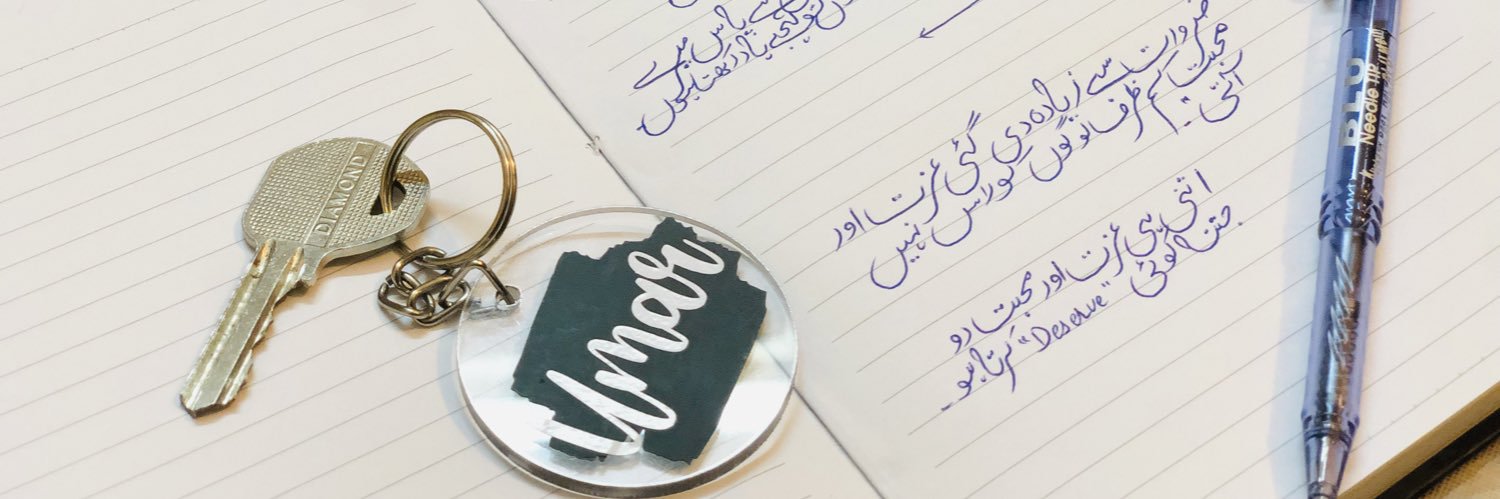 پاس میرے
یاد رکھتا ہوں
ضروات سے زیادہ دی گئی عزت اور
محبت کم ظرف لوگوں کو راس نہیں
آتی۔
اتنی ہی عزت اور محبت دو
جتنا کوئی "Deserve" کرتا ہو۔
DIAMOND
Umar
Needle tip